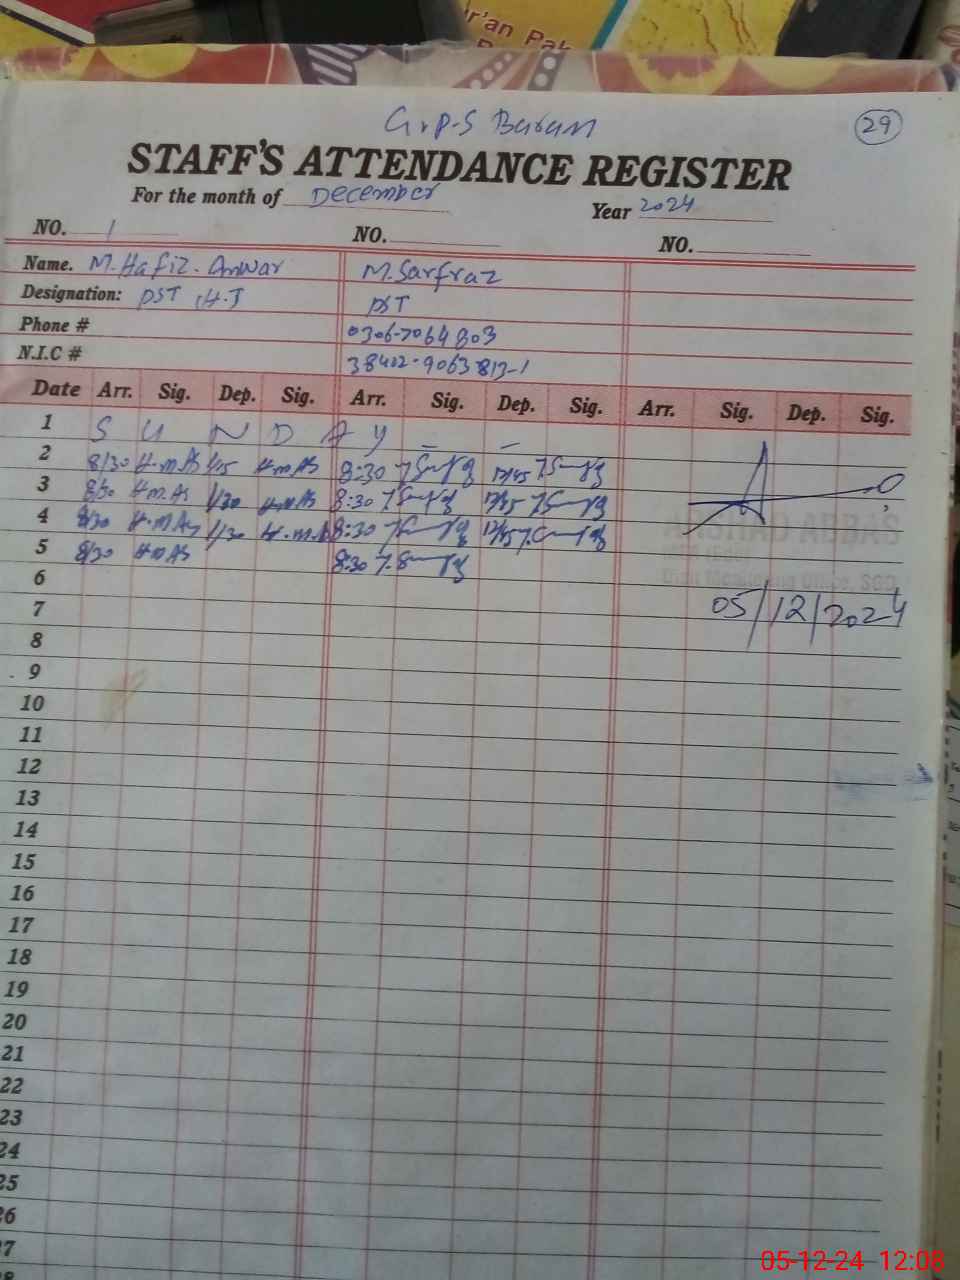 r'an Pak
G.P.S Baram
29
STAFF'S ATTENDANCE REGISTER
For the month of December
Year 2024
NO. 1 NO. NO.
Name. M.Hafiz. Anwar M.Sarfraz
Designation: PST , H.T PST
Phone # 0306-7064803
N.I.C # 38402-9063813-1
Date Arr. Sig. Dep. Sig. Arr. Sig. Dep. Sig. Arr. Sig. Dep. Sig.
1 S U N D A Y – –
2 8/30 H.M.AS 1/15 H.M.AS 8:30 12/45
3 8/30 H.M.AS 1/30 H.M.AS 8:30 12/45
4 8/30 H.M.AS 1/30 H.M.A 8:30 12/45
ARSHAD ABBAS
5 8/30 H.M.AS 8:30
6
7 05/12/2024
8
9
10
11
12
13
14
15
16
17
18
19
20
21
22
23
24
25
26
27
28
05-12-24 12:08